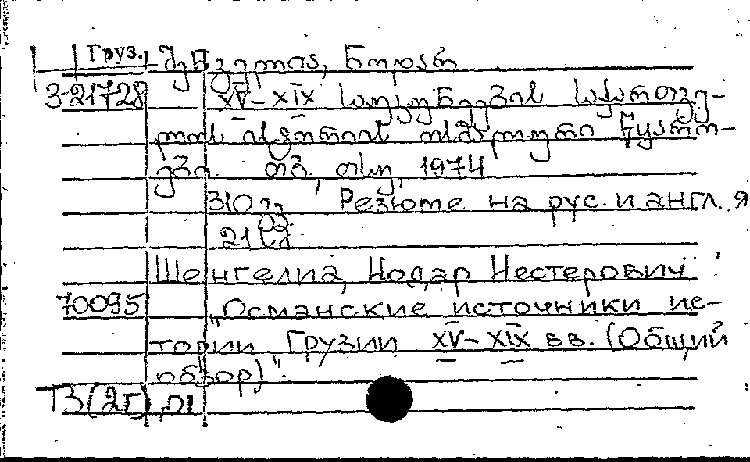 Груз. შენგელია, ნოდარ
3-21728 XV-XIX საუკუნეების საქართვე-
ლოს ისტორიის ოსმალური წყარო-
ები. თბ., თსუ, 1974
310 გვ. Резюме на рус. и англ. я
21 სმ
Шенгелиа, Нодар Нестерович.
70095 „Османские источники ис-
тории Грузии XV-XIX вв. (Общий
обзор)".
T3(2Г),01